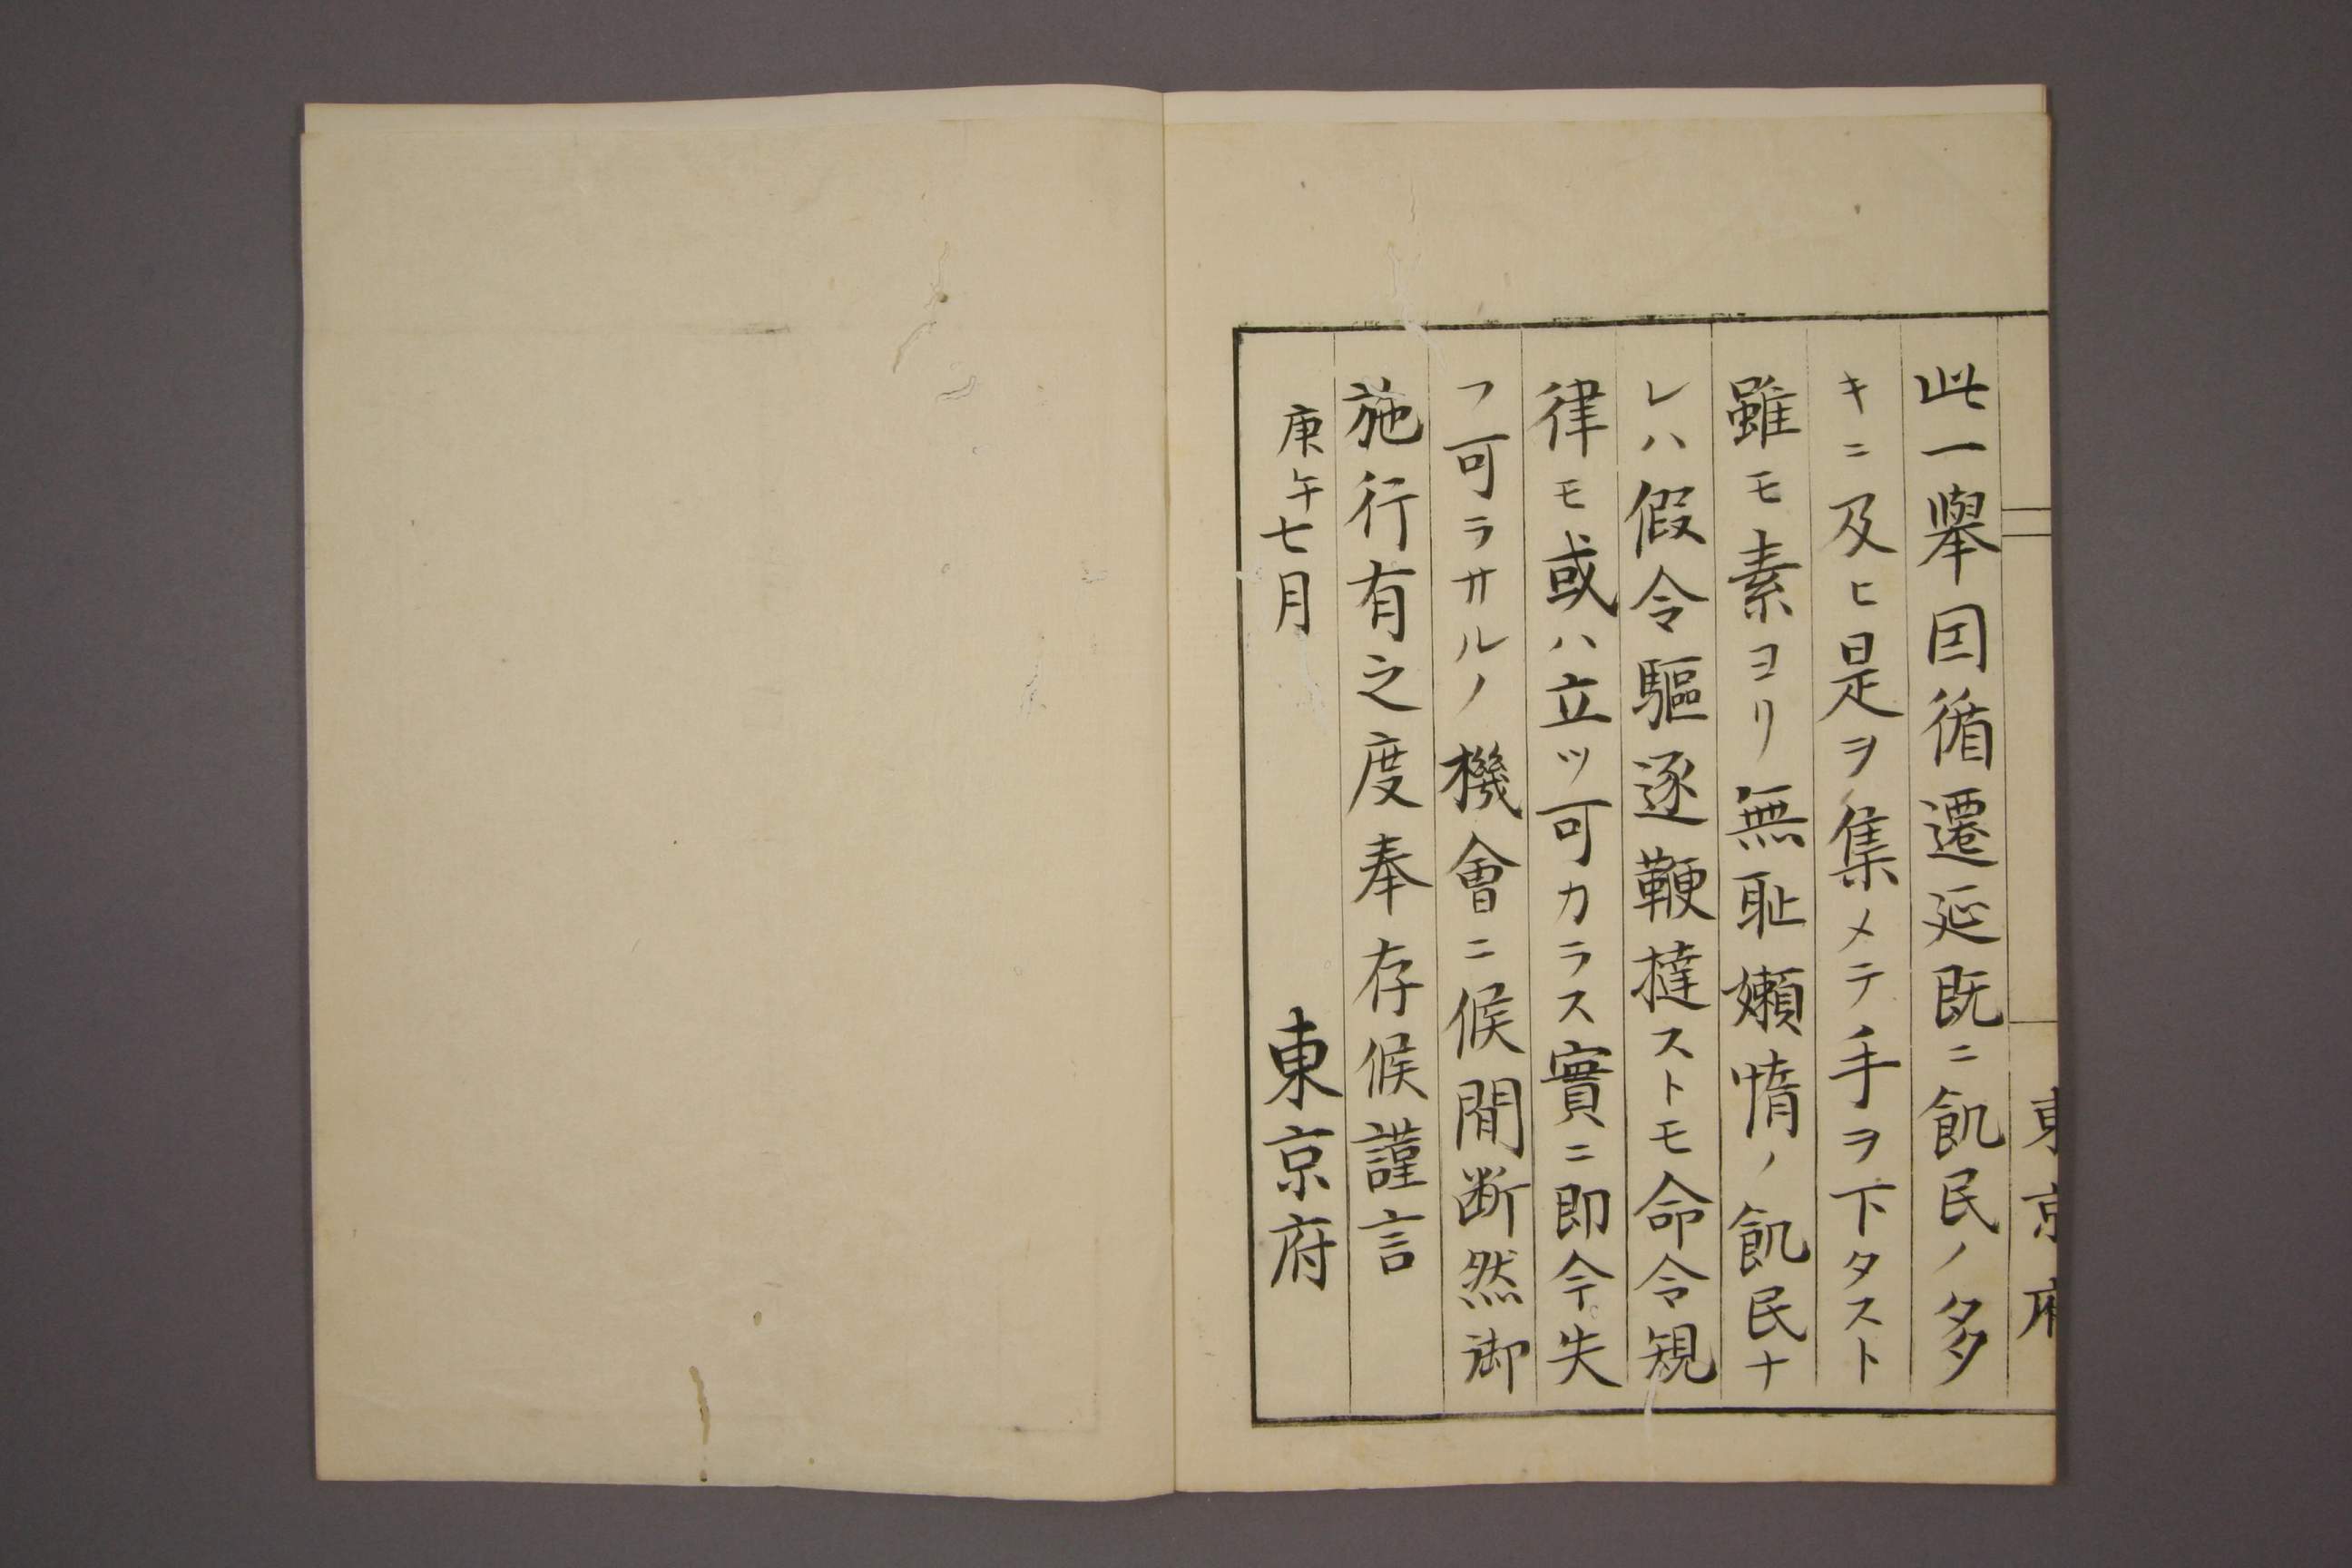 東京府
此一舉因循遷延既ニ飢民ノ多
キニ及ヒ是ヲ集メテ手ヲ下タスト
雖モ素ヨリ無恥嬾惰ノ飢民ナ
レハ假令驅逐鞭撻ストモ命令規
律モ或ハ立ツ可カラス實ニ即今失
フ可ラサルノ機會ニ候間断然御
施行有之度奉存候謹言
庚午七月 東京府